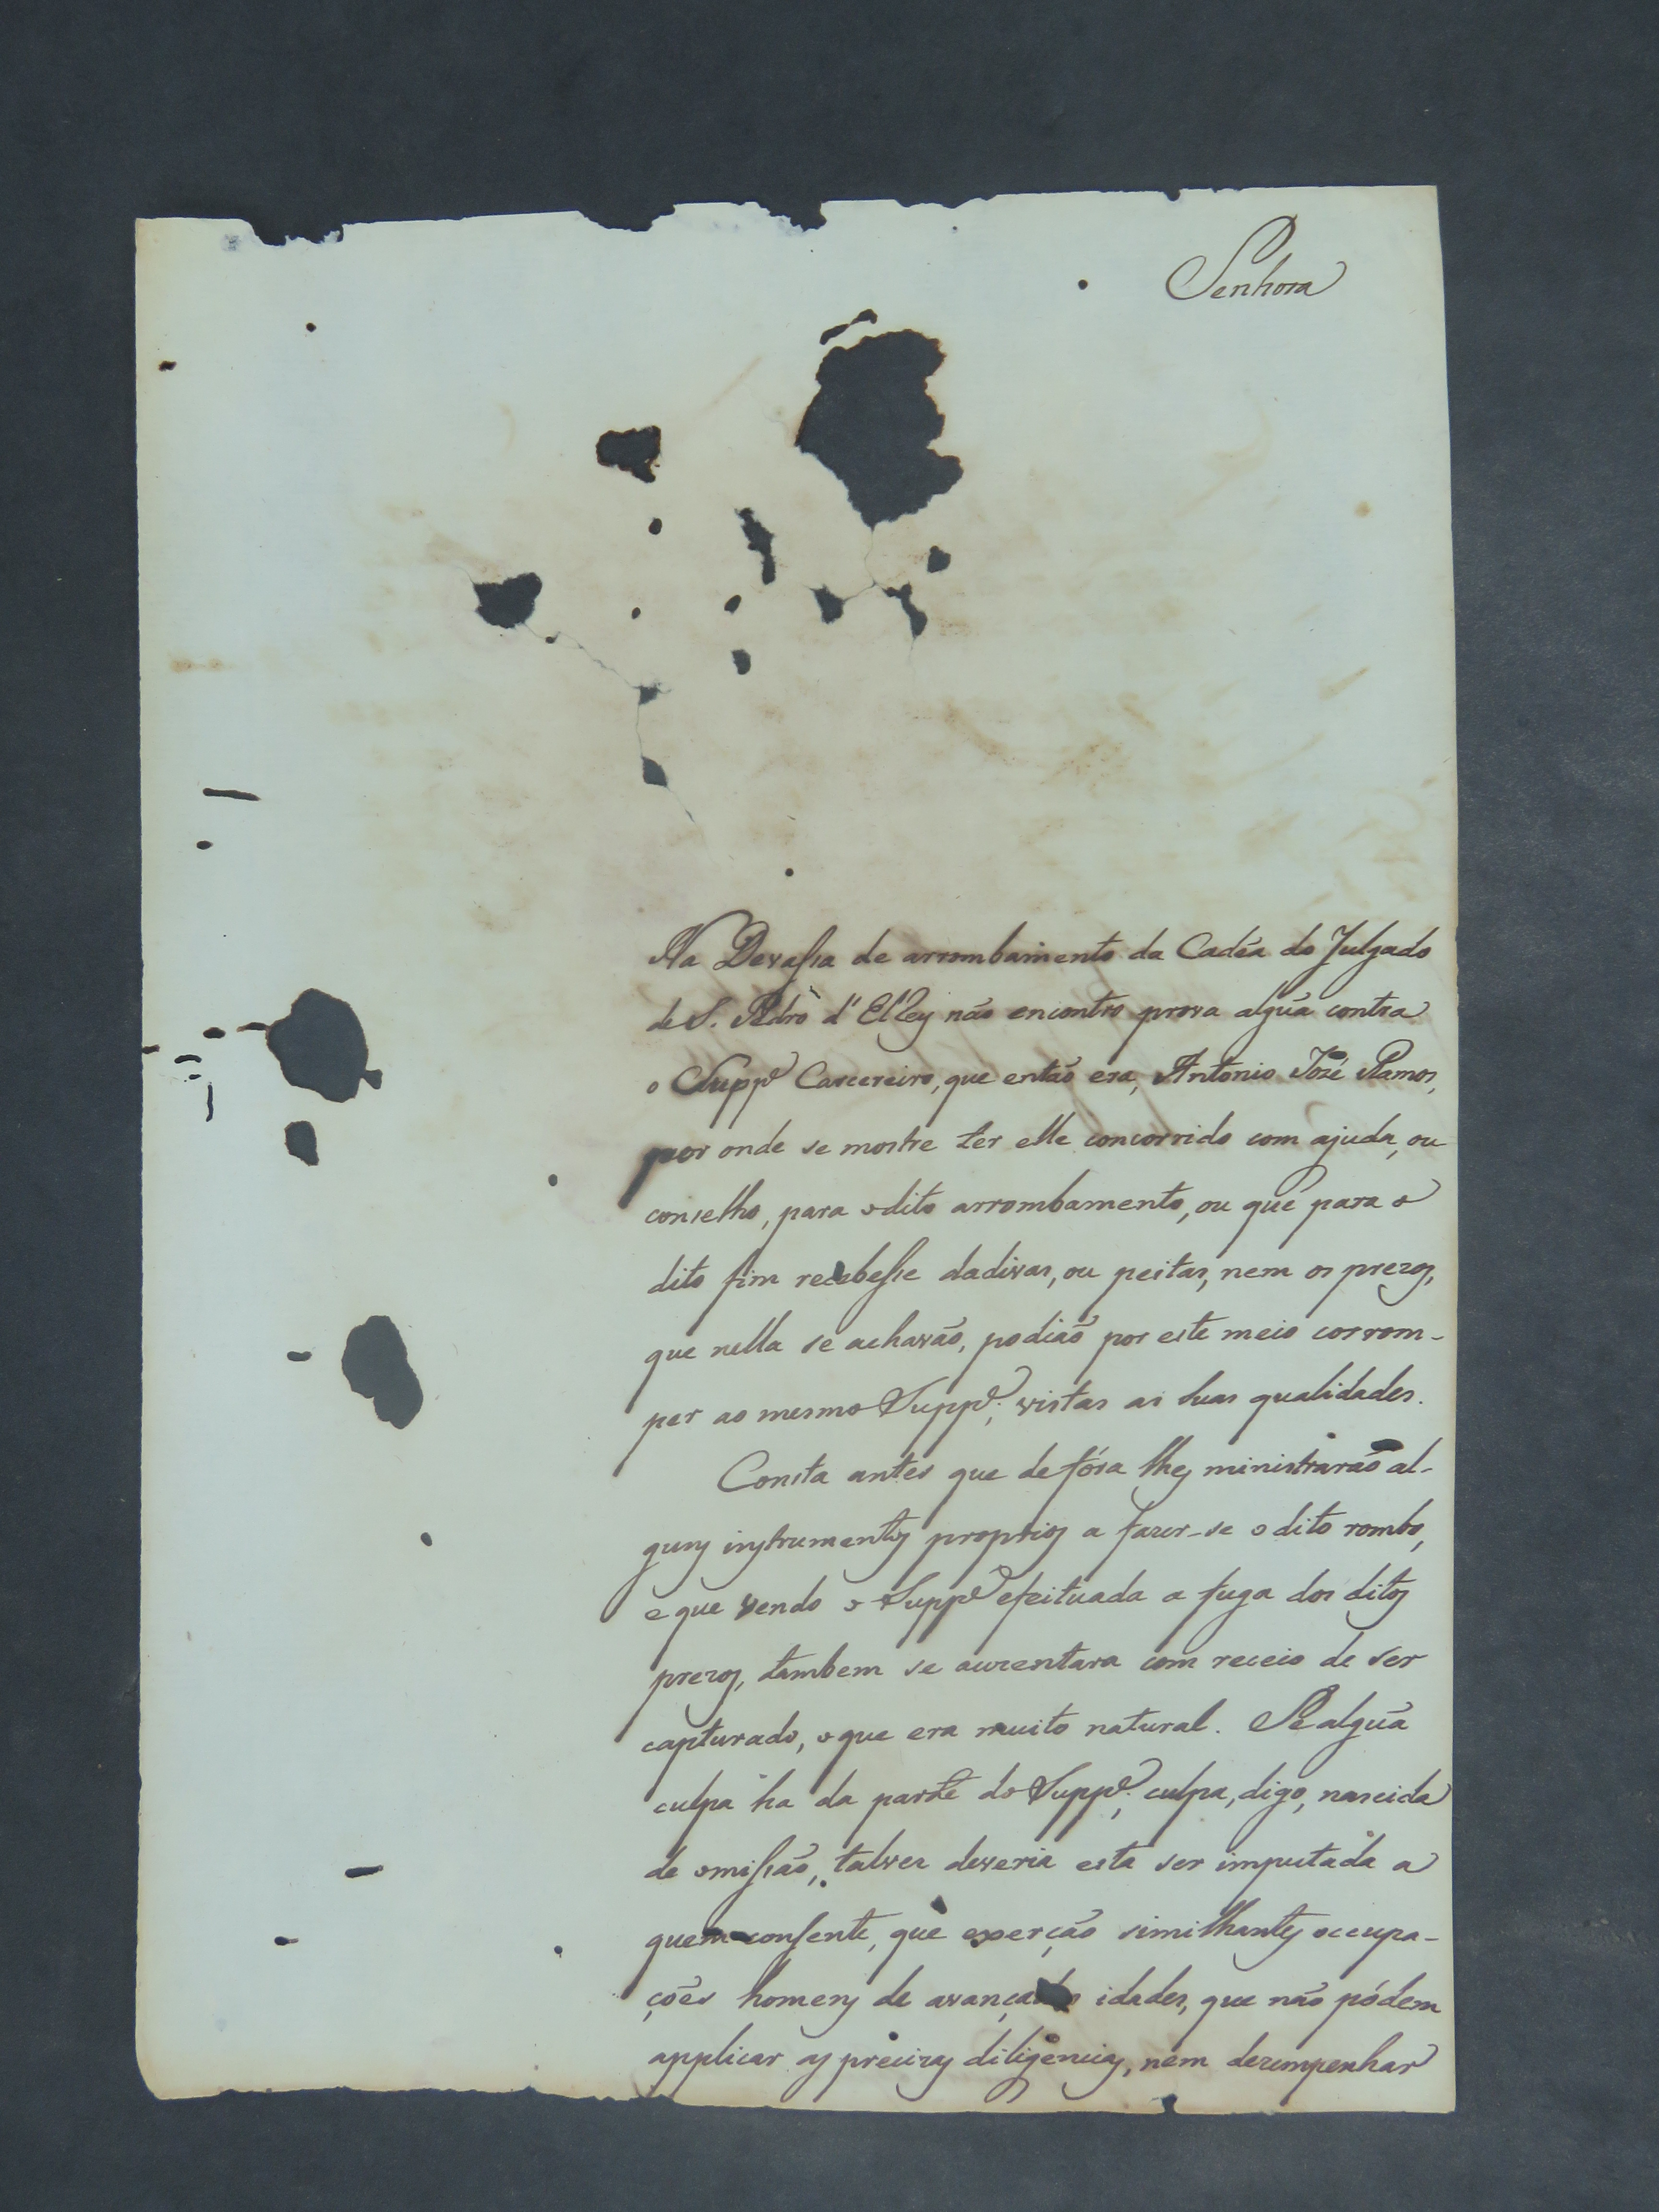 Senhora
Na Devassa de arrombamento da Cadêa do Julgado
de S. Pedro d'ElRey não encontro prova algũa contra
o Supp.e Carcereiro, que então era, Antonio José Ramos,
por onde se mostre ter elle concorrido com ajuda, ou
conselho, para o dito arrombamento, ou que para o
dito fim recebesse dadivas, ou peitas, nem os prezos,
que nella se achavão, podião por este meio corrom-
per ao mesmo Supp.e, vistas as suas qualidades.
Consta antes que de fóra lhes ministrarão al-
guns instrumentos proprios a fazer-se o dito rombo,
e que vendo o Supp.e efeituada a fuga dos ditos
prezos, tambem se auzentara com receio de ser
capturado, o que era muito natural. Se algũa
culpa ha da parte do Supp.e, culpa, digo, nascida
de omissão, talvez deveria esta ser imputada a
quem consente, que exerção similhantes occupa-
ções homens de avançadas idades, que não pódem
applicar as precizas diligencias, nem dezempenhar